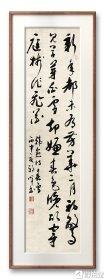 新年都未有芳華二月初驚
見草芽白雪却嫌春色晚故穿
庭樹作飛花
韓愈詩春雪